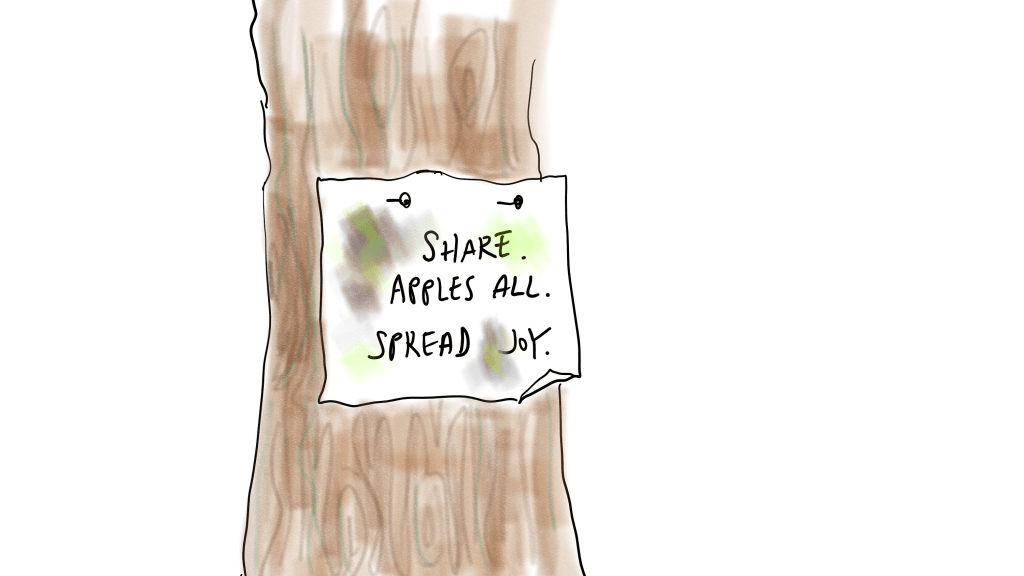 SHARE.
APPLES ALL.
SPREAD JOY.